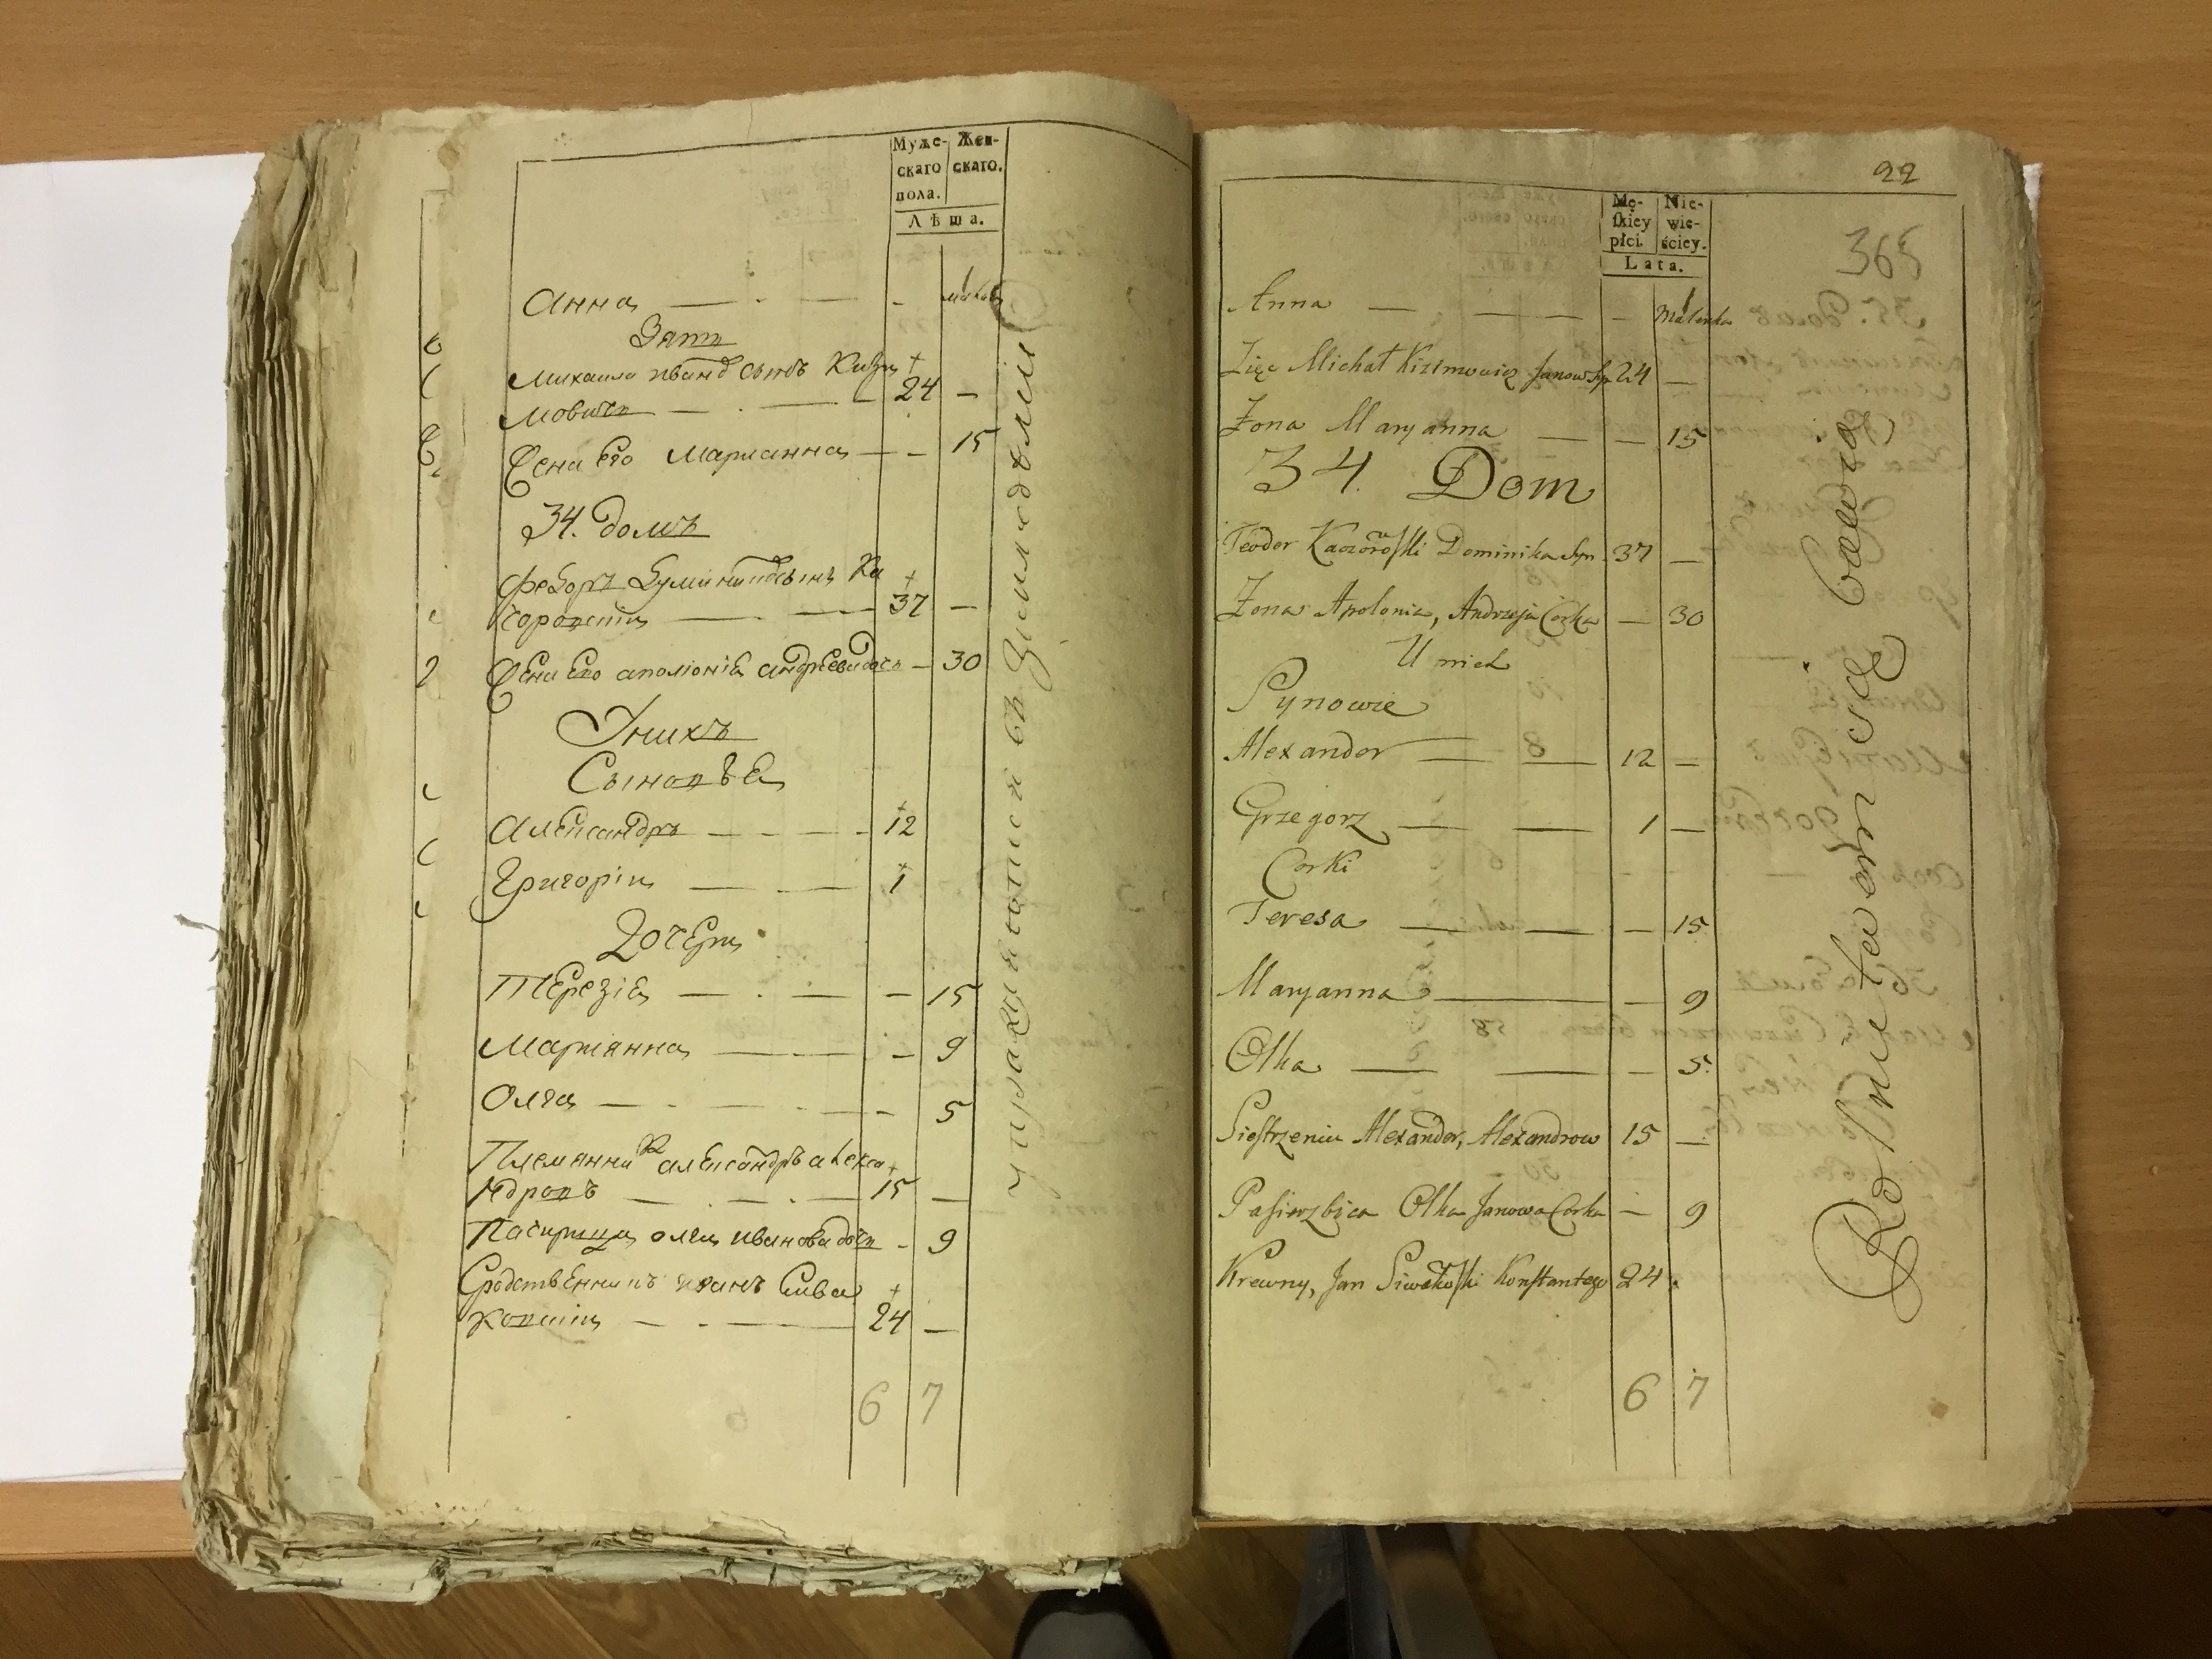 Муже- Жен-
скаго скаго.
пола.
Лѣта.
Анна — — — -
Зять
Михаила Иванов сынъ Кизи
мовичь — — — 24 —
Жена Его Марианна — - 15
34. домъ
Федоръ сынъ Ка
чоровскiи — — 37 —
Жена Его аполіонія андреева дочь - 30
У нихъ
Сыновья
Александръ — — - 12
Григоріи — — 1
Дочери
Терезія — — - 15
Маріянна — — - 9
Олга — — - 5
Племянникъ александръ алекса
ндровъ — — — 15 —
Пасирпица олга иванова дочь - 9
Сродственникъ иванъ Сива
ковскіи — — 24 —
6 7
упражняются въ Земледеліи
22
Mę- Nie-
ſkiey wie-
płci. ściey.
Lata.
365
Anna — — — - Maleńka
Zięć Michał Kizimowicz Janow Syn 24 —
Zona Maryanna — — 15
34. Dom
Teodor Kaczoroſki Dominika Syn 37 —
Zona Apolonia, Andrzeja Corka — 30
U nich
Synowie
Alexander — — 12 —
Grzegorz — — 1 —
Corki
Teresa — — — 15
Maryanna — — 9
Olka — — — 5
Sieſtrzeniec Alexander, Alexandrow 15 —
Paſierzbica Olka Janowa Corka — 9
Krewny, Jan Siwakoſki Konſtantego 24
6 7
Rolnictwem się bawią